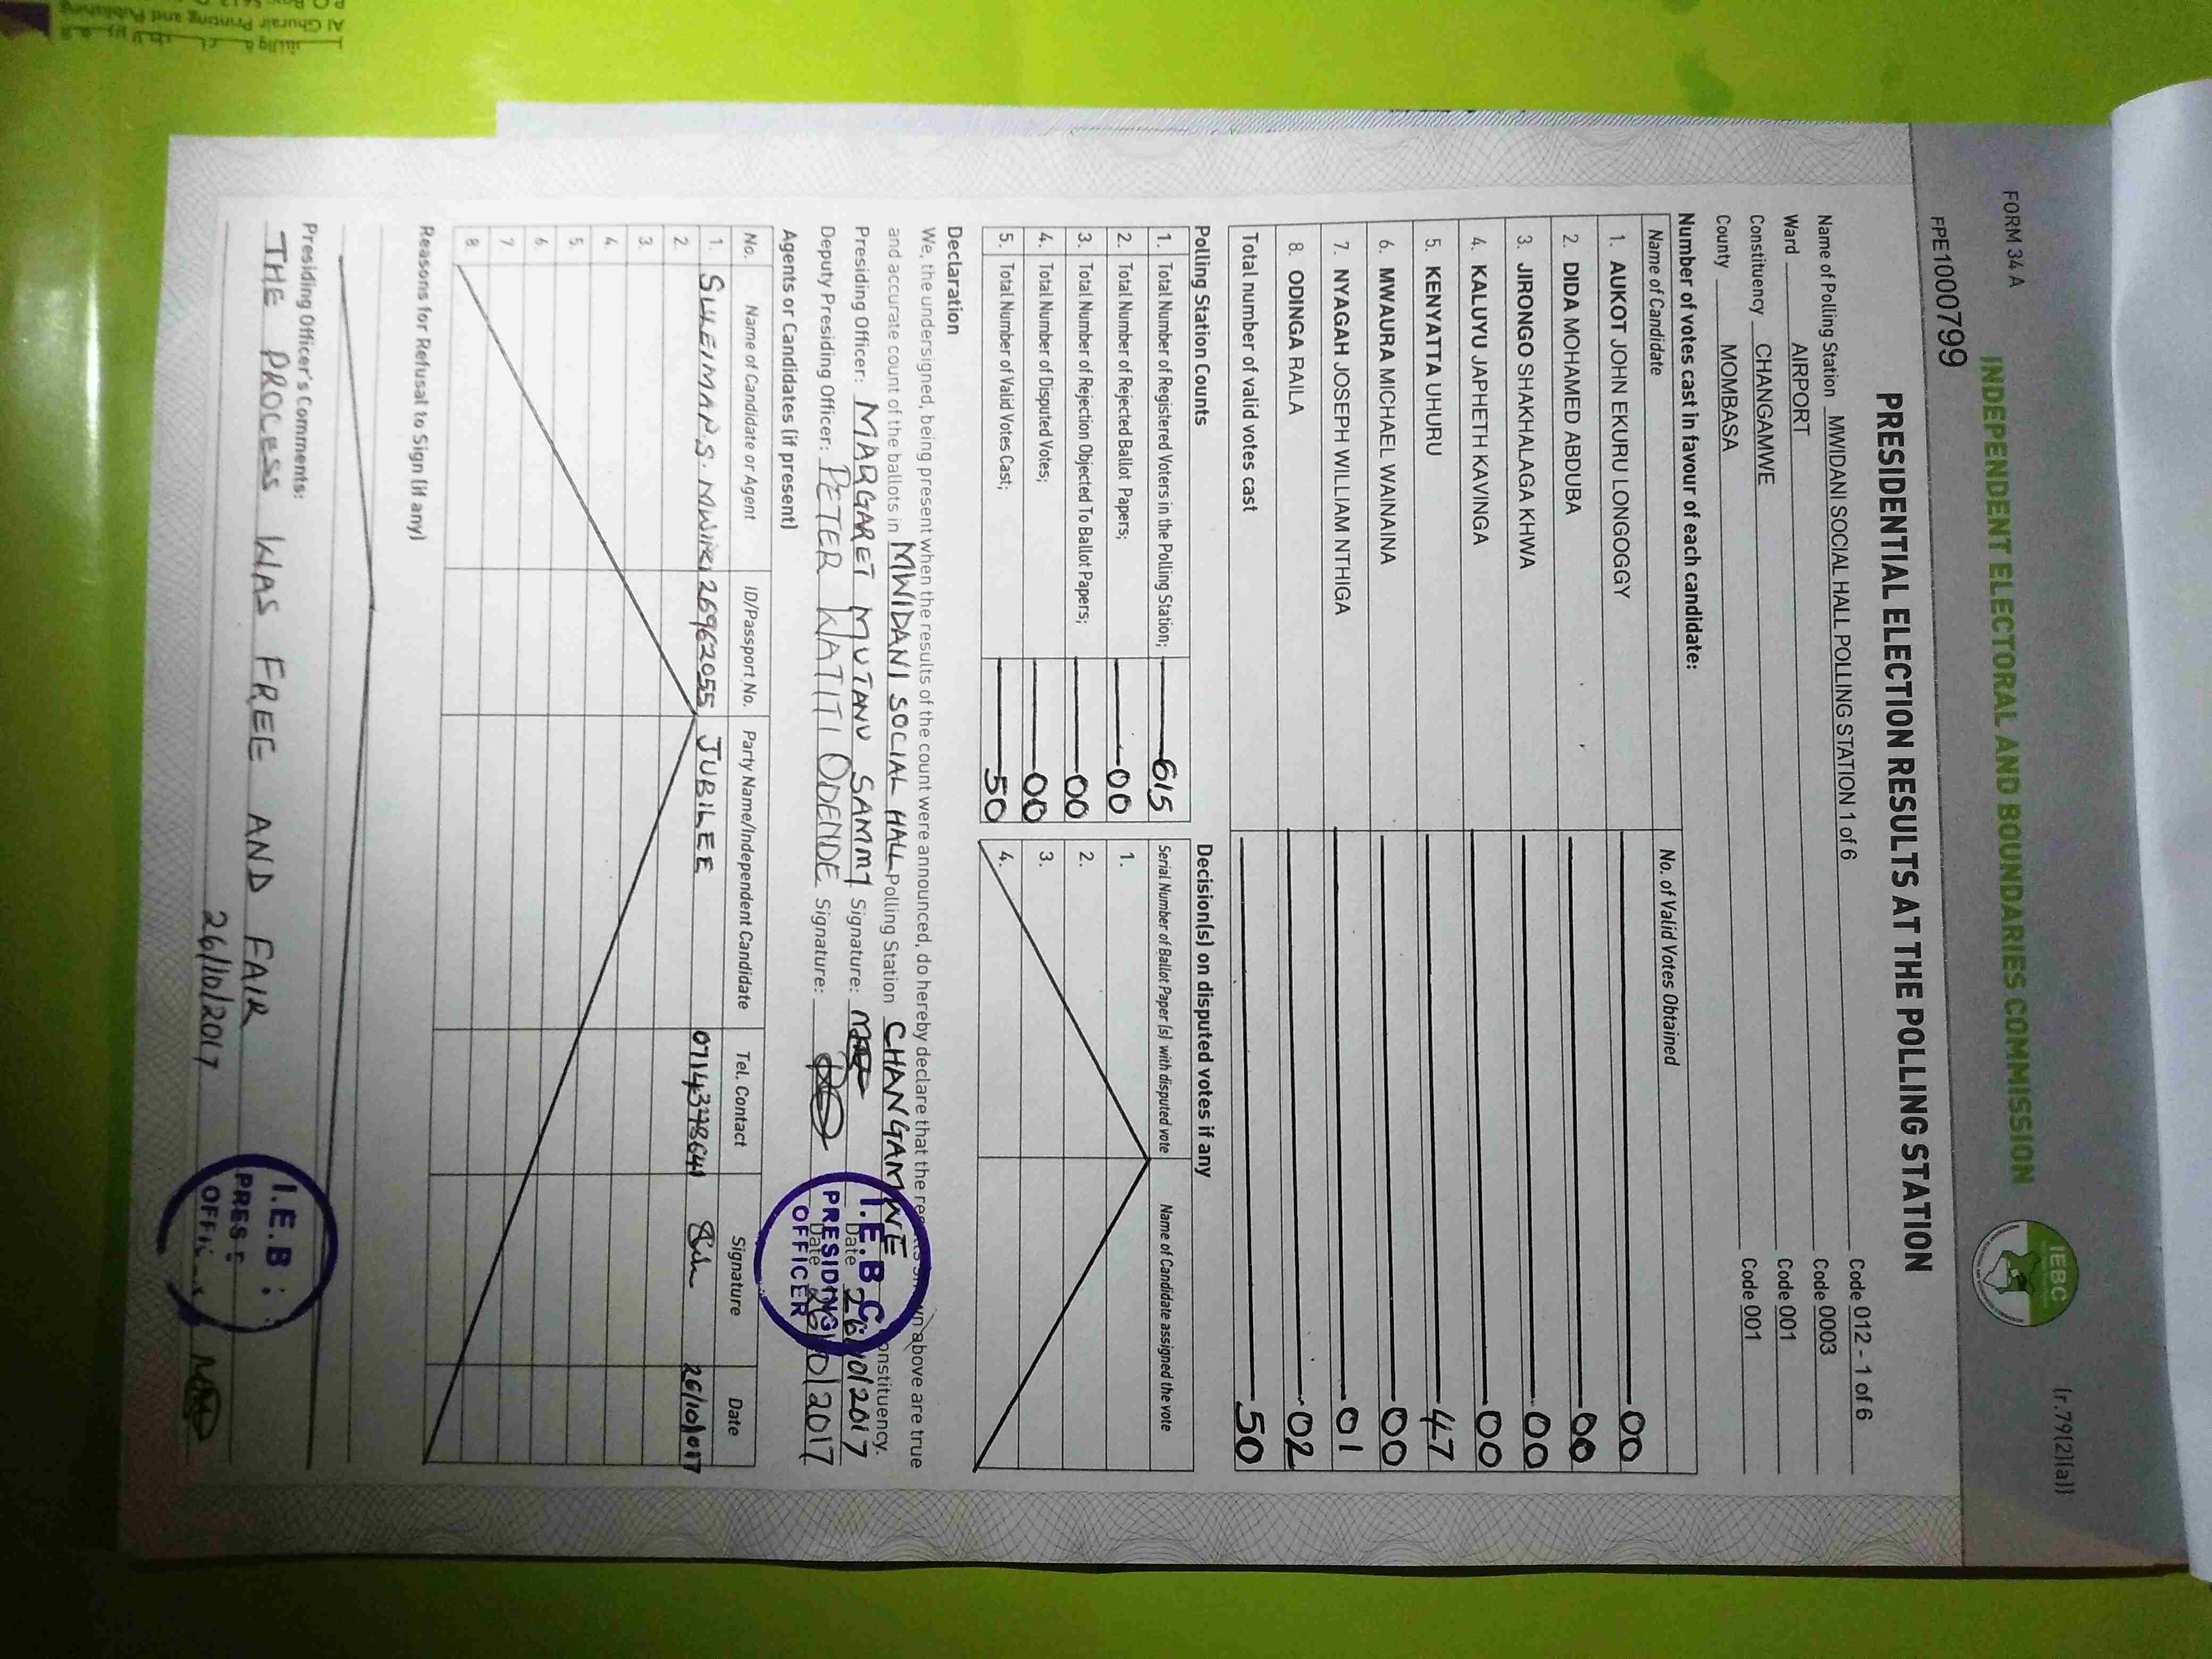 FORM 34 A
(r.79(2)(a))
INDEPENDENT ELECTORAL AND BOUNDARIES COMMISSION
IEBC
FPE1000799
PRESIDENTIAL ELECTION RESULTS AT THE POLLING STATION
Name of Polling Station MWIDANI SOCIAL HALL POLLING STATION 1 of 6 Code 012 - 1 of 6
Ward AIRPORT Code 0003
Constituency CHANGAMWE Code 001
County MOMBASA Code 001
Number of votes cast in favour of each candidate:
Name of Candidate No. of Valid Votes Obtained
1. AUKOT JOHN EKURU LONGOGGY 00
2. DIDA MOHAMED ABDUBA 00
3. JIRONGO SHAKHALAGA KHWA 00
4. KALUYU JAPHETH KAVINGA 00
5. KENYATTA UHURU 47
6. MWAURA MICHAEL WAINAINA 00
7. NYAGAH JOSEPH WILLIAM NTHIGA 01
8. ODINGA RAILA 02
Total number of valid votes cast 50
Polling Station Counts
1. Total Number of Registered Voters in the Polling Station; 615
2. Total Number of Rejected Ballot Papers; 00
3. Total Number of Rejection Objected To Ballot Papers; 00
4. Total Number of Disputed Votes; 00
5. Total Number of Valid Votes Cast; 50
Decision(s) on disputed votes if any
Serial Number of Ballot Paper (s) with disputed vote Name of Candidate assigned the vote
1.
2.
3.
4.
Declaration
We, the undersigned, being present when the results of the count were announced, do hereby declare that the above are true
and accurate count of the ballots in MWIDANI SOCIAL HALL Polling Station CHANGAMWE Constituency.
Presiding Officer: MARGARET MUTANU SAMMY Signature: Date 26/10/2017
Deputy Presiding Officer: PETER WATITI ODENDE Signature: Date 26/10/2017
I.E.B.C.
PRESIDING
OFFICER
Agents or Candidates (if present)
No. Name of Candidate or Agent ID/Passport No. Party Name/Independent Candidate Tel. Contact Signature Date
1. SULEIMAN S. 26962055 JUBILEE 26/10/2017
2.
3.
4.
5.
6.
7
8.
Reasons for Refusal to Sign (if any)
Presiding Officer's Comments:
THE PROCESS WAS FREE AND FAIR
26/10/2017
I.E.B
PRES
OFFI
Al Ghurair Printing and Publishing